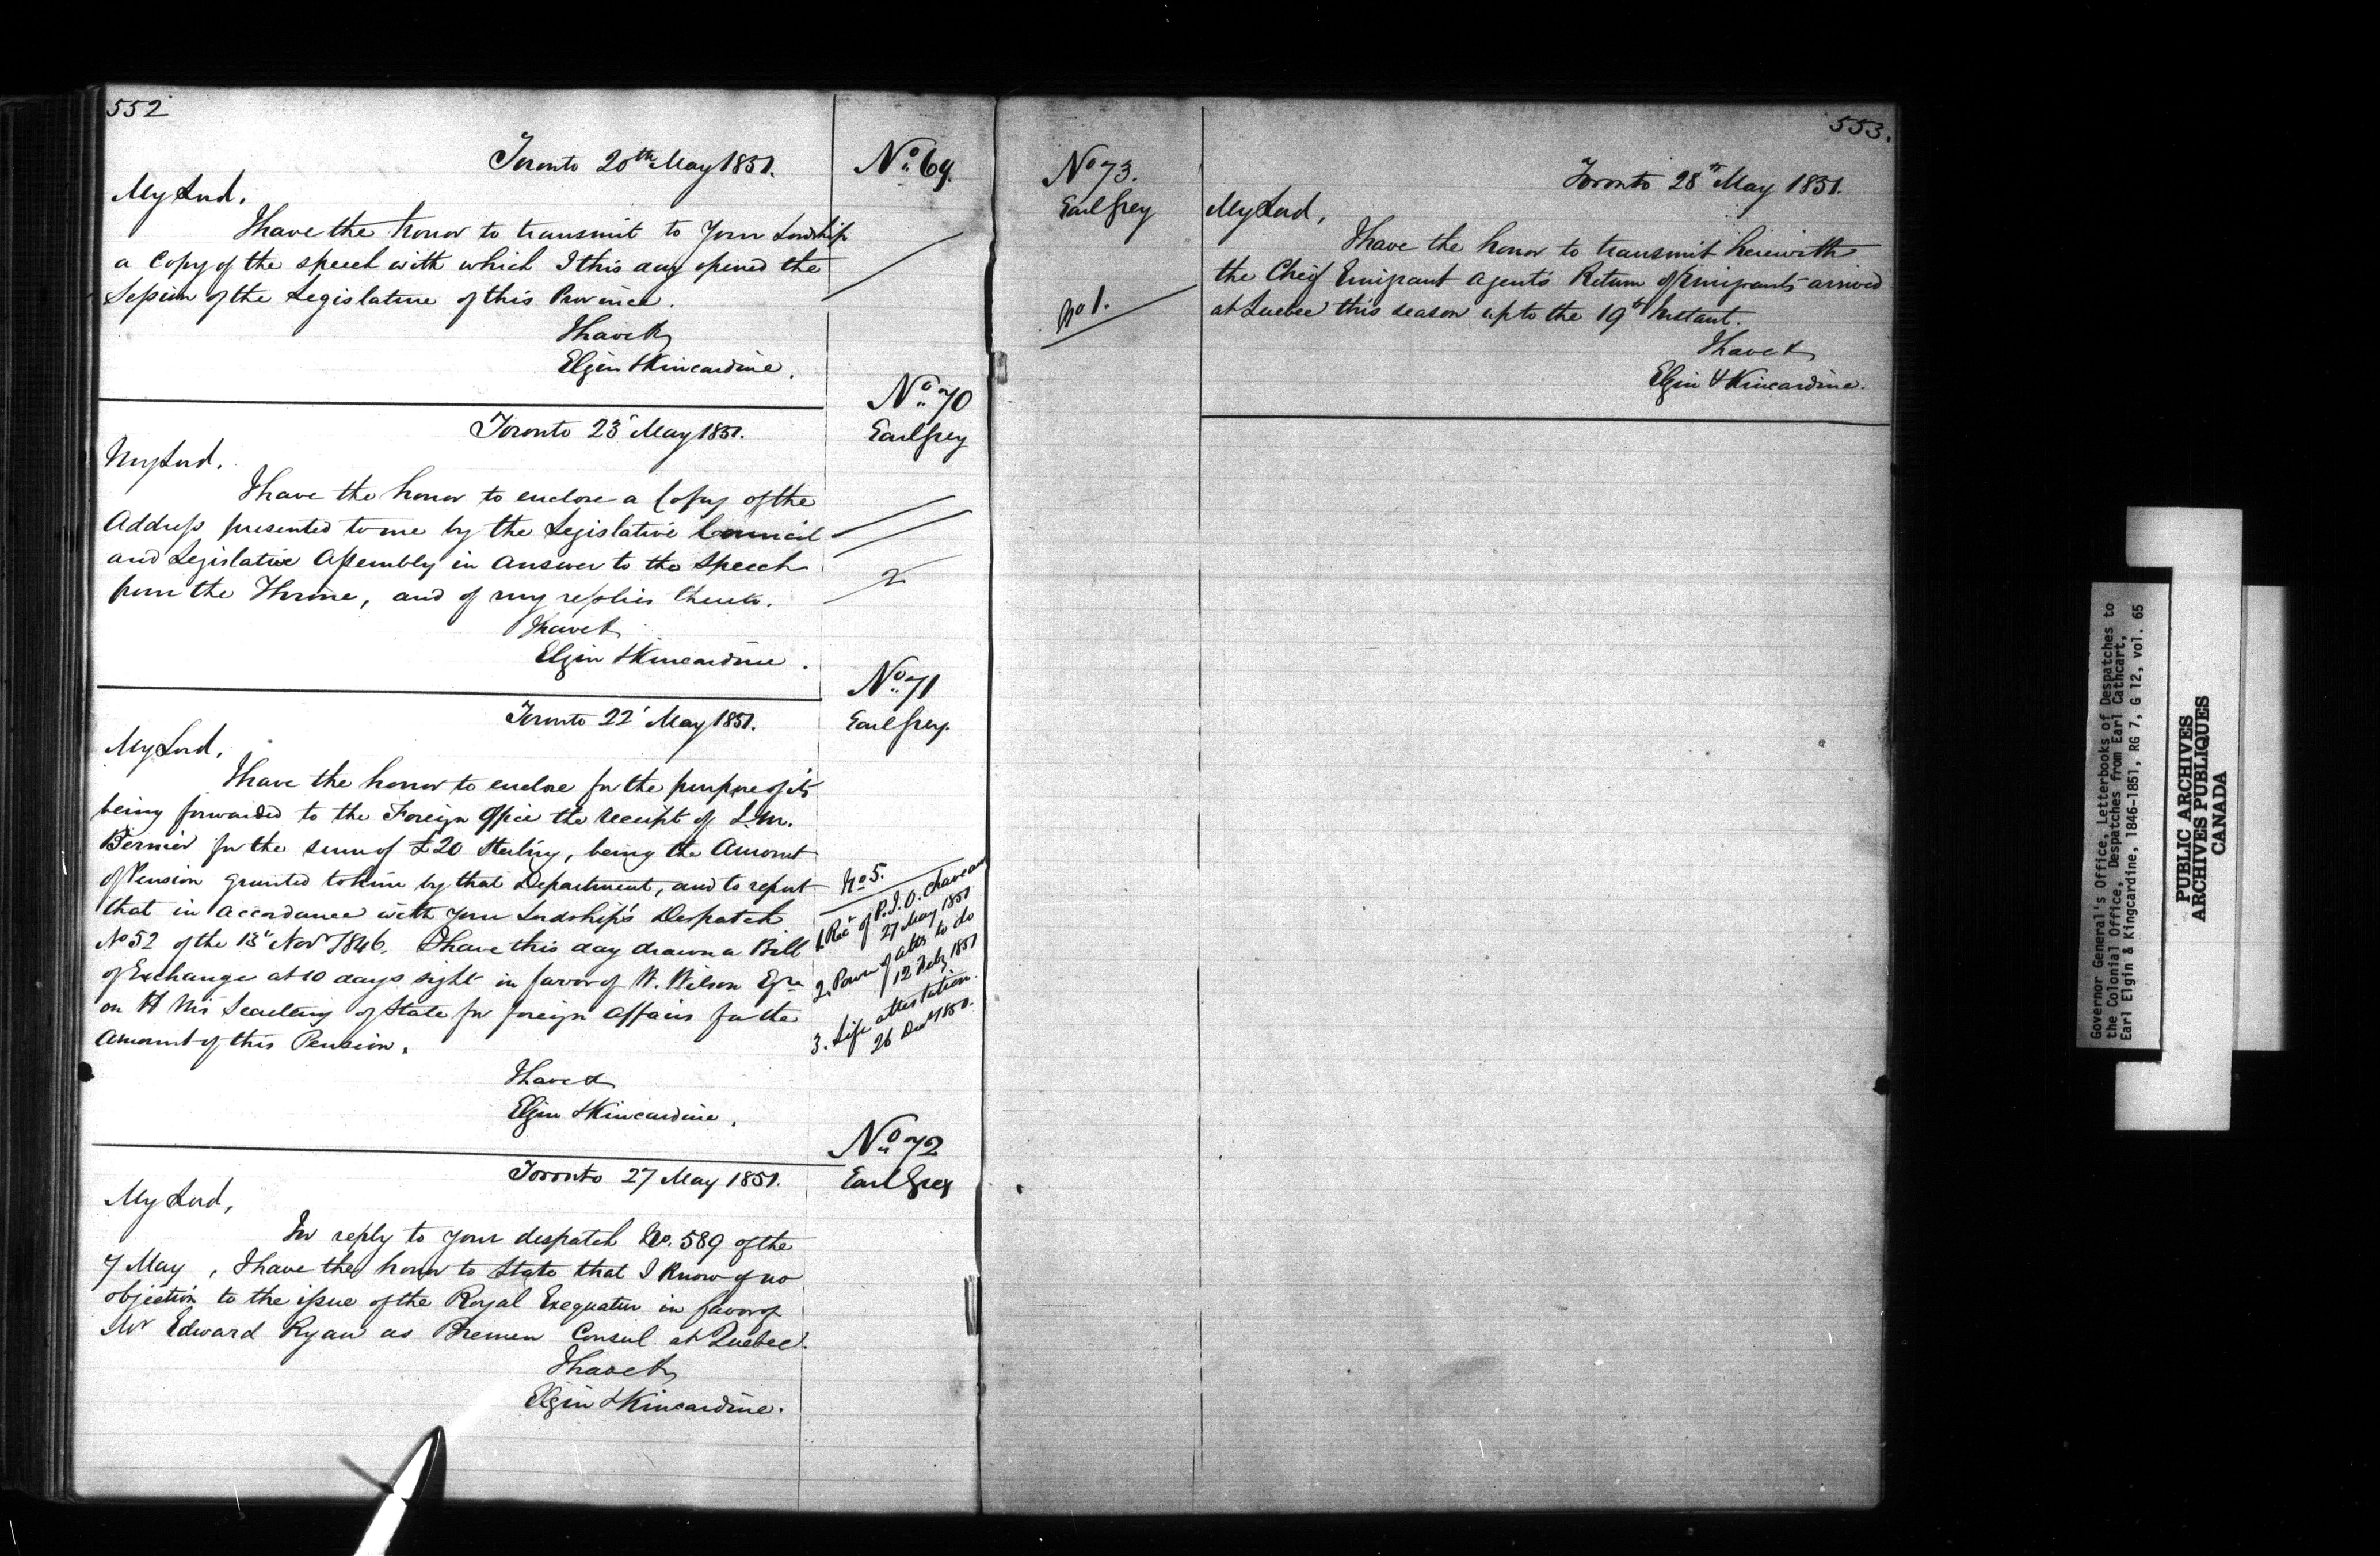 552
Toronto 20th May 1851.
No. 69.
My Lord,
I have the honor to transmit to Your Lordship
a Copy of the speech with which I this day opened the
Session of the Legislature of this Province.
I have &c
Elgin & Kincardine.
No. 70
Earl Grey
Toronto 23d May 1851.
My Lord,
I have the honor to enclose a Copy of the
Address presented to me by the Legislative Council
and Legislative Assembly in Answer to the Speech
from the Throne, and of my replies thereto.
2
I have &c
Elgin & Kincardine.
No. 71
Earl Grey.
Toronto 22d May 1851.
My Lord,
I have the honor to enclose for the purpose of its
being forwarded to the Foreign Office the receipt of L.M.
Bernier for the sum of £20 Sterling, being the Amount
of Pension granted to him by that Department, and to report
that in accordance with your Lordship's Despatch
No 52 of the 13th Novr 1846. I have this day drawn a Bill
of Exchange at 10 days sight in favor of W. Wilson Esqre
on H Ms Secretary of State for foreign Affairs for the
Amount of this Pension.
No 5.
1. Rect of P.J.O. Chaveau
27 May 1851
2. Power of atty to do
12 Feby 1851
3. Life attestation.
26 Decr 1850.
I have &c
Elgin & Kincardine.
No. 72
Earl Grey
Toronto 27 May 1851.
My Lord,
In reply to your despatch No. 589 of the
7 May, I have the honor to State that I know of no
objection to the issue of the Royal Exequatur in favor of
Mr Edward Ryan as Bremen Consul at Quebec.
I have &c
Elgin & Kincardine.
553.
No 73.
Earl Grey
Toronto 28th May 1851.
My Lord,
I have the honor to transmit herewith
the Chief Emigrant Agent's Return of Emigrants arrived
at Quebec this season up to the 19th Instant.
No 1.
I have &c
Elgin & Kincardine.
Governor General's Office, Letterbooks of Despatches to
the Colonial Office, Despatches from Earl Cathcart,
Earl Elgin & Kingcardine, 1846-1851, RG 7, G 12, vol. 65
PUBLIC ARCHIVES
ARCHIVES PUBLIQUES
CANADA